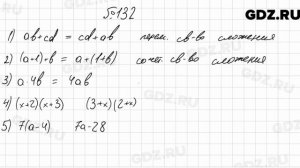 GDZ.RU
№132
1) ab+cd = cd+ab перем. св-во сложения
2) (a+1)+b = a+(1+b) сочет. св-во сложения
3) a·4b = 4ab
4) (x+2)(x+3) (3+x)(2+x)
5) 7(a-4) 7a-28
GDZ.RU